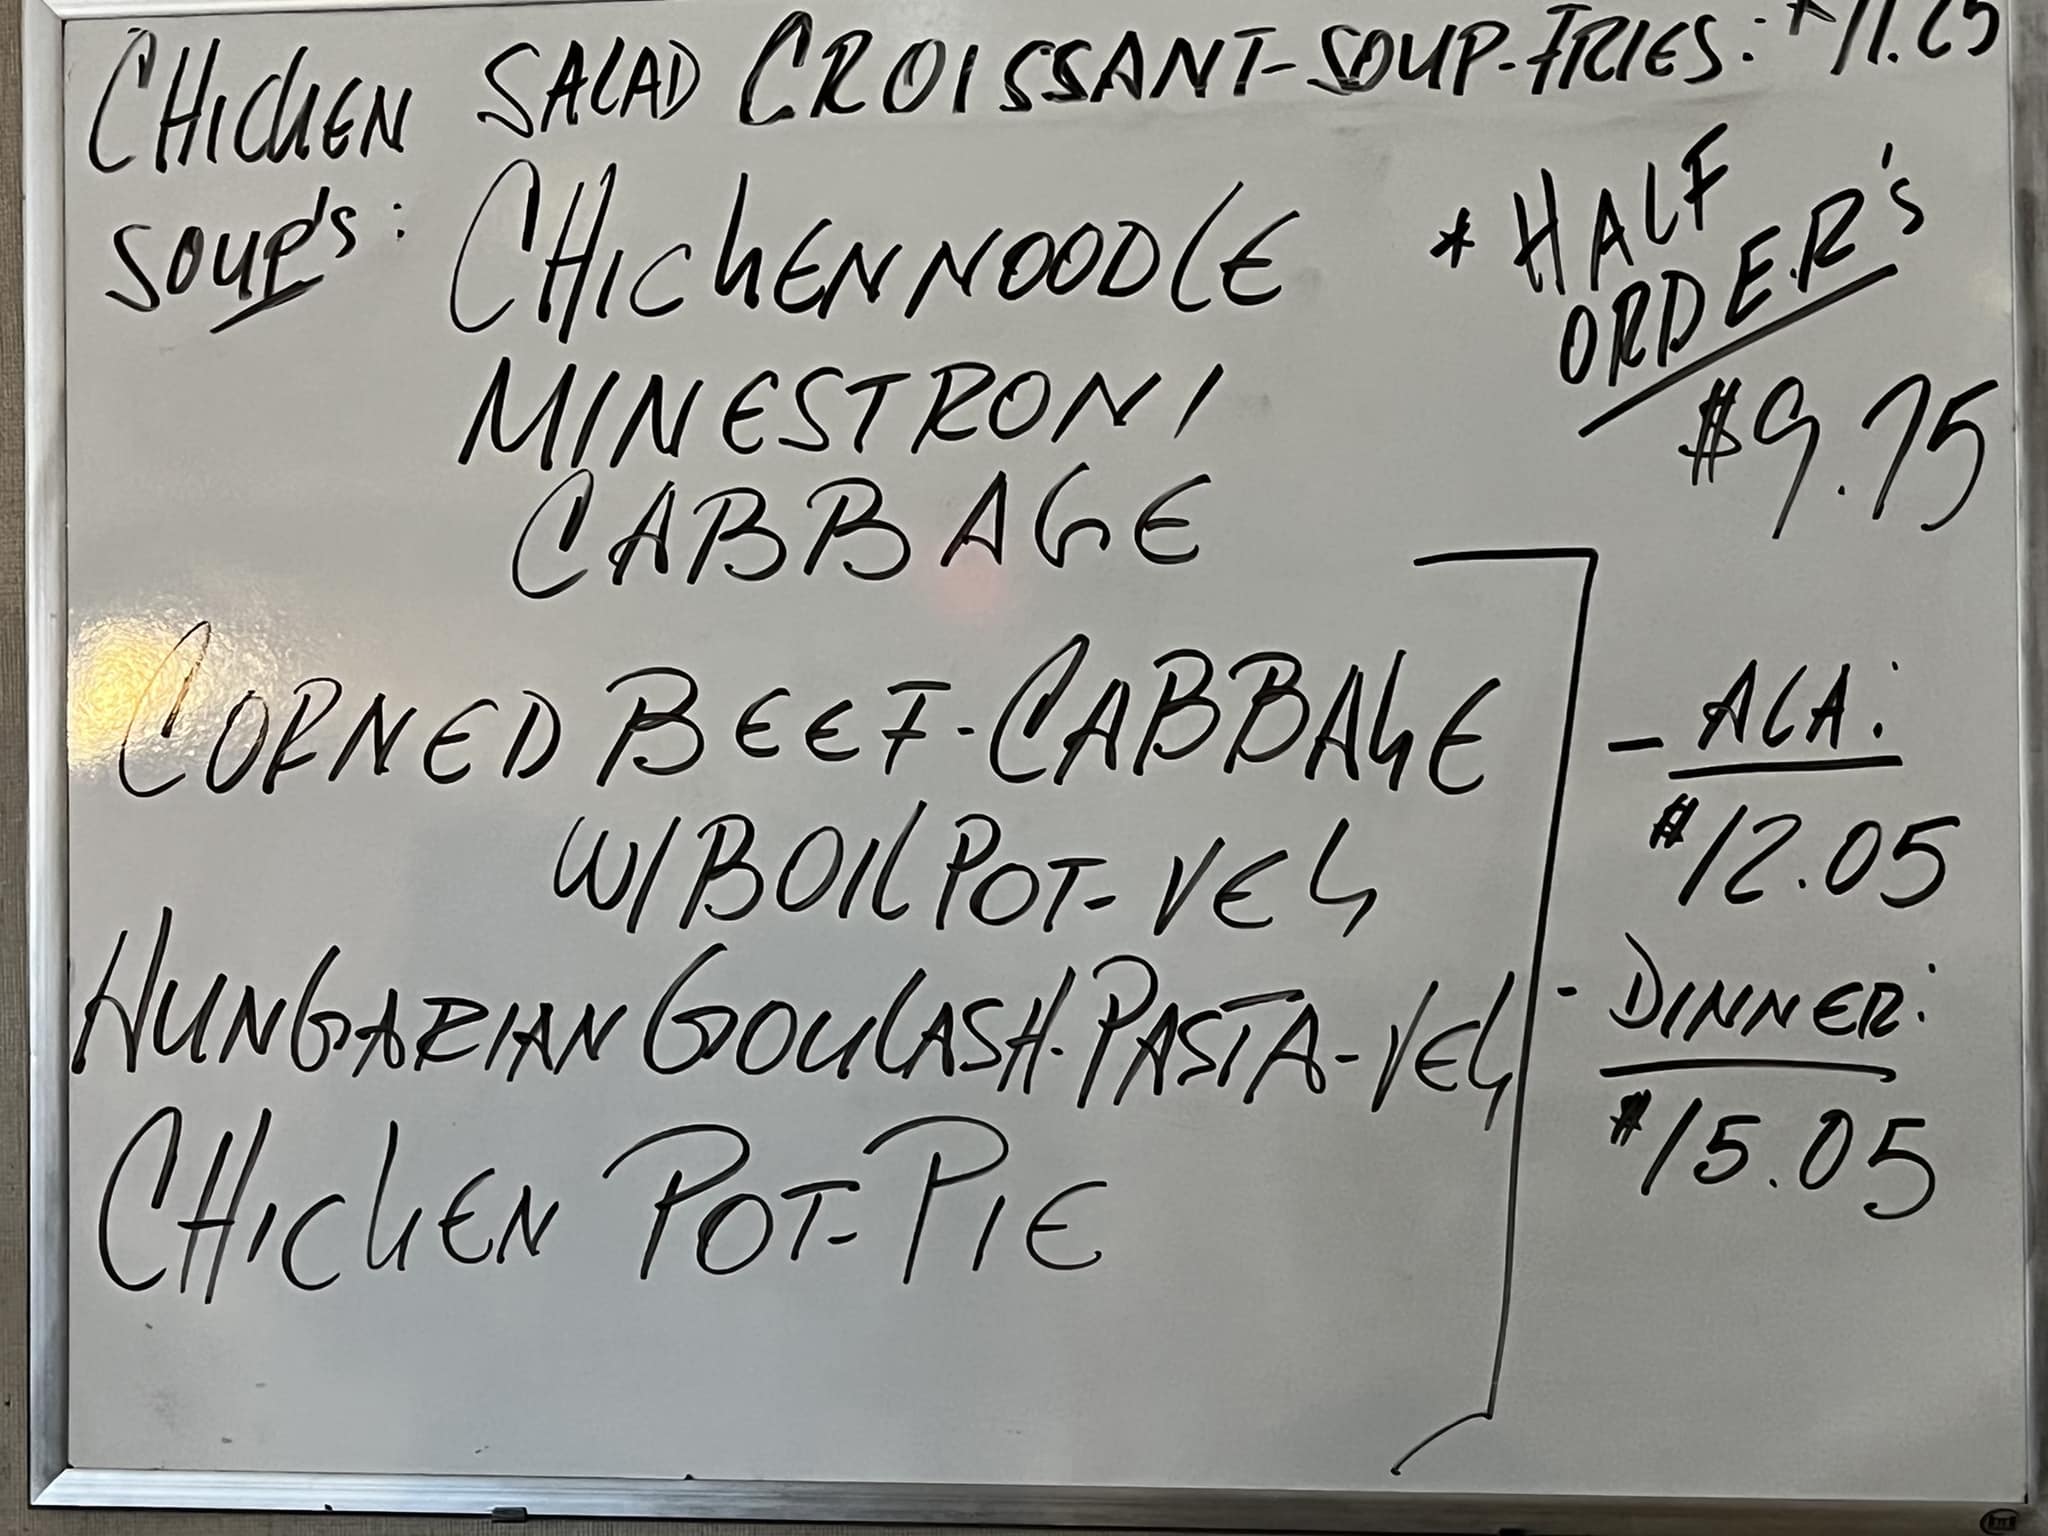 CHICKEN SALAD CROISSANT-SOUP-FRIES: $11.25
SOUP's: CHICKEN NOODLE
MINESTRONI
CABBAGE
* HALF
ORDER's
$9.75
CORNED BEEF-CABBAGE
W/BOIL POT-VEG
HUNGARIAN GOULASH-PASTA-VEG
CHICKEN POT-PIE
- ALA:
$12.05
- DINNER:
$15.05